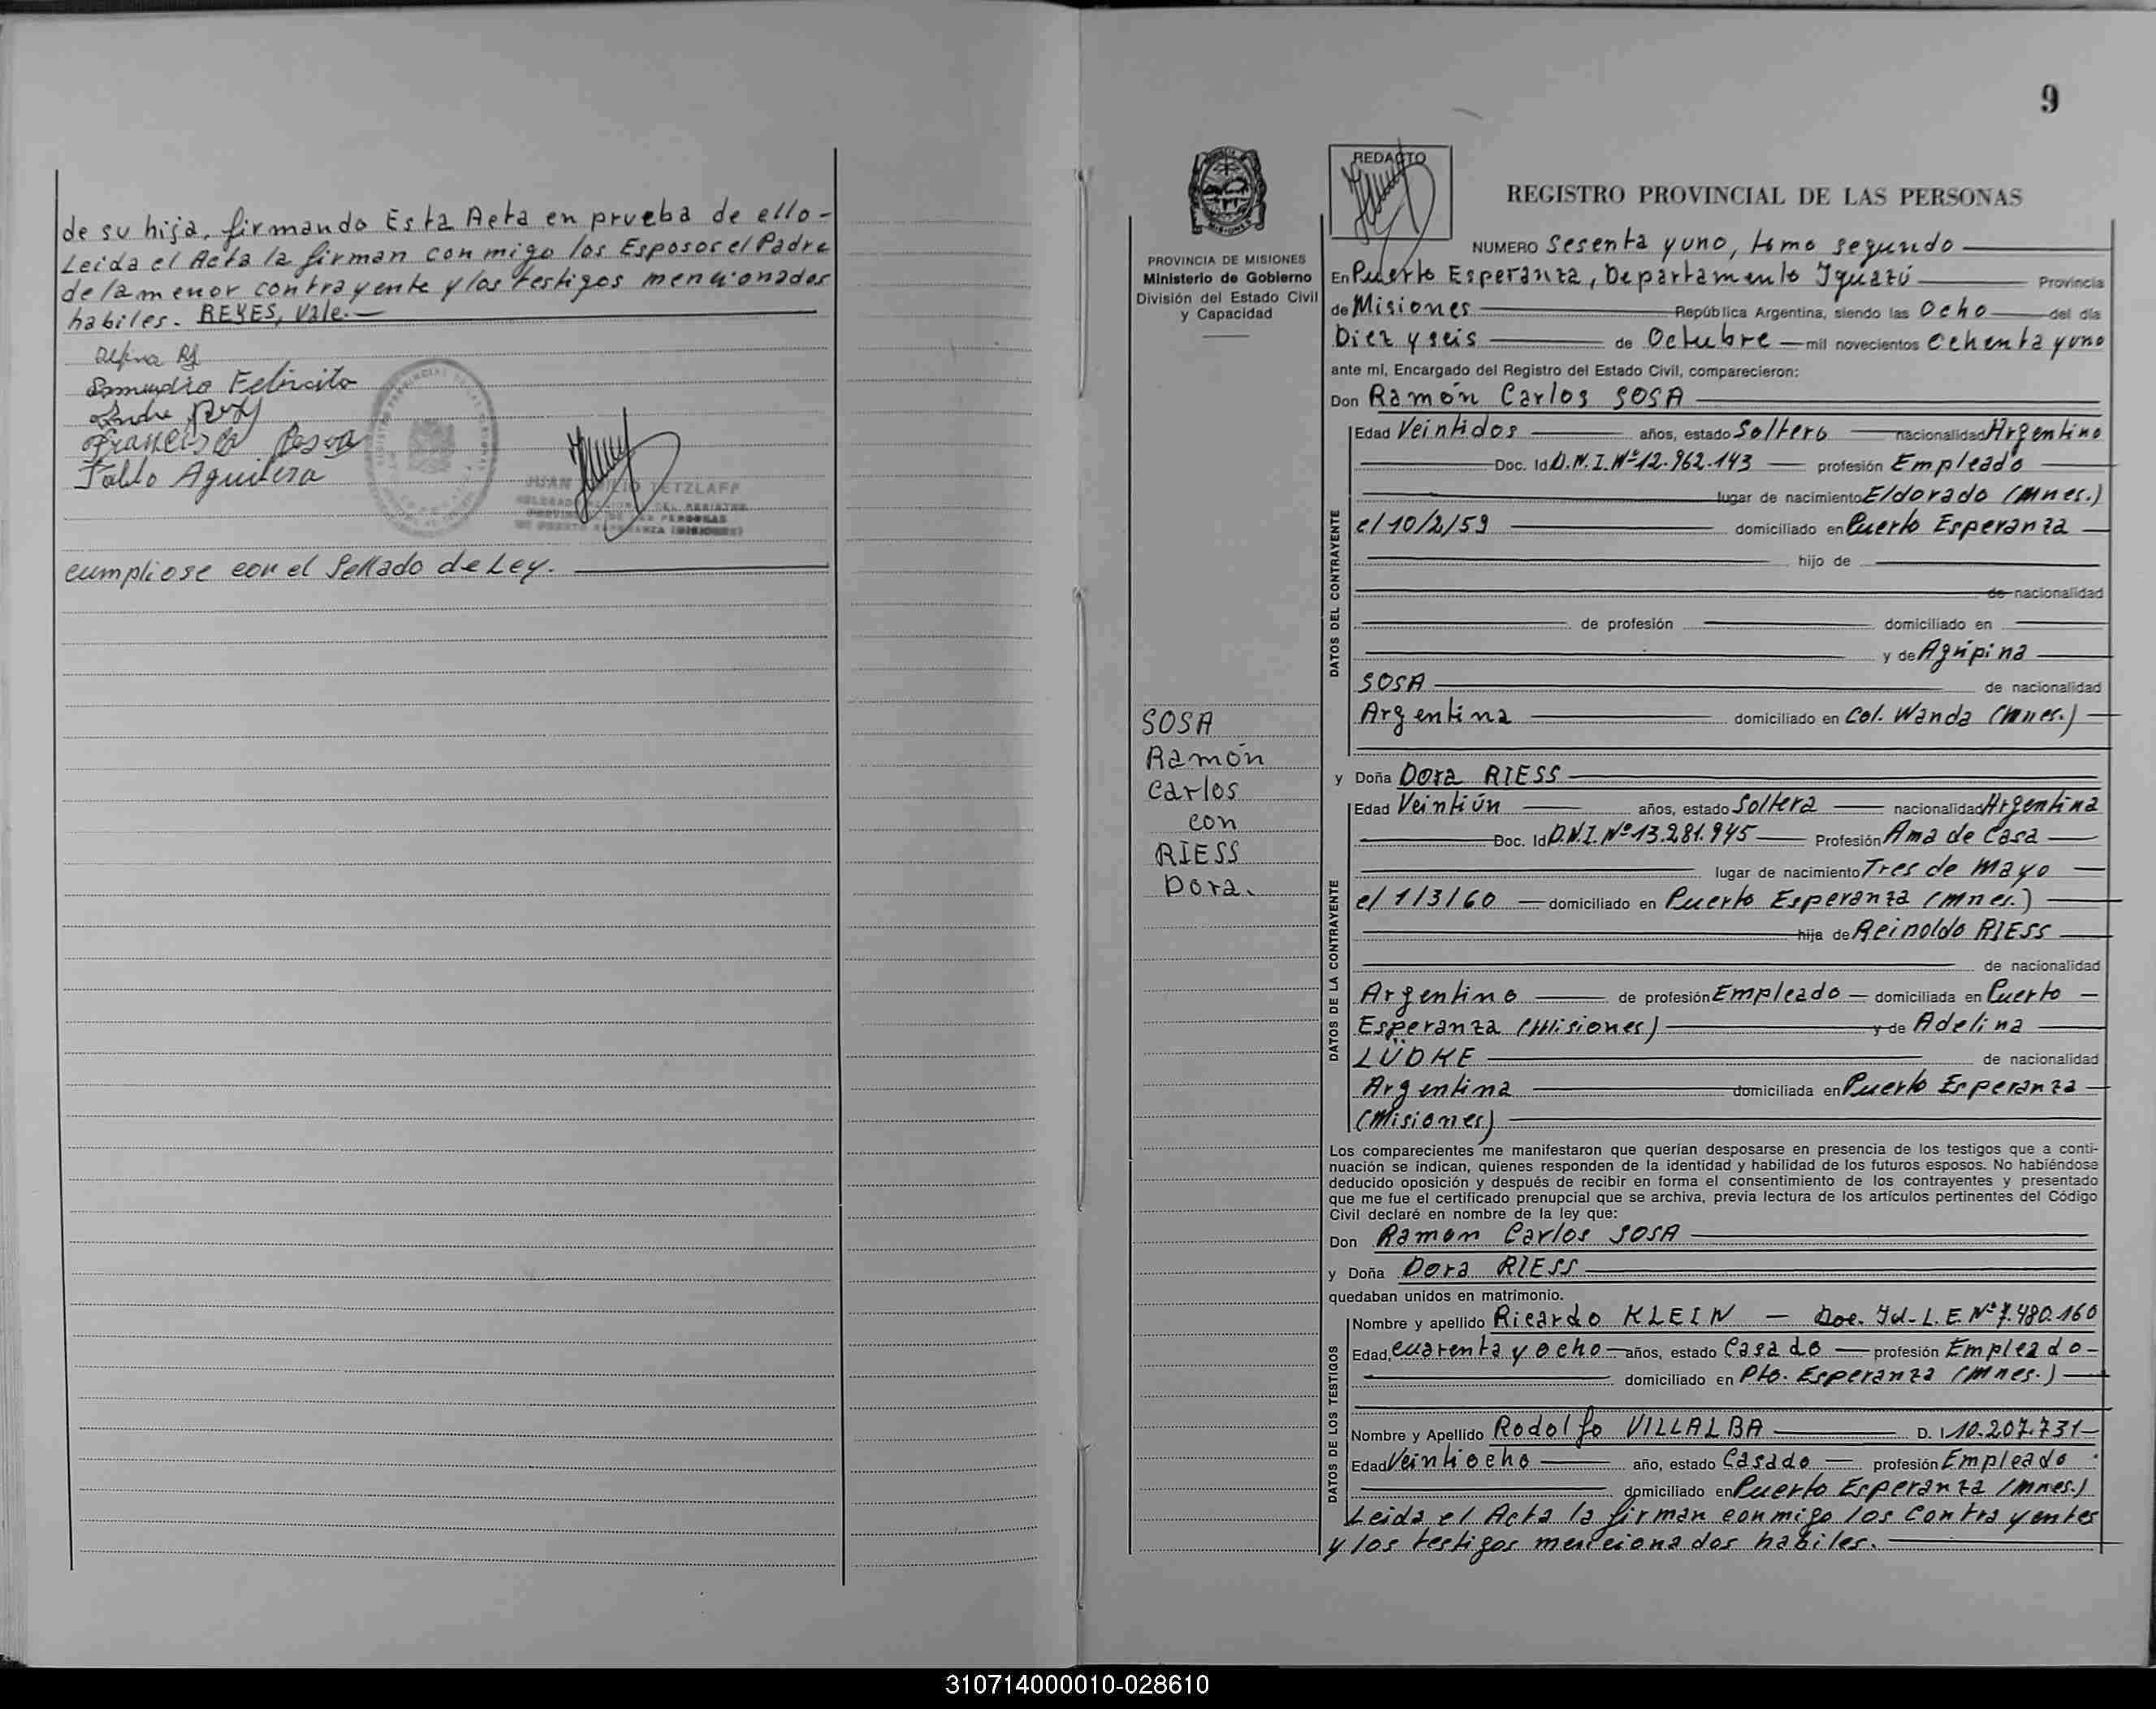 de su hija, firmando Esta Acta en prueba de ello-
Leida el Acta la firman con migo los Esposos el Padre
de la menor contrayente y los testigos mencionados
habiles. REYES, Vale.
Felicita
Francisca
Pablo Aguilera
JUAN TETZLAFF
cumpliose con el Sellado de Ley.
9
PROVINCIA DE MISIONES
Ministerio de Gobierno
División del Estado Civil
y Capacidad
SOSA
Ramón
Carlos
con
RIESS
Dora.
REDACTO
REGISTRO PROVINCIAL DE LAS PERSONAS
NUMERO Sesenta y uno, tomo segundo
En Puerto Esperanza, Departamento Iguazú Provincia
de Misiones República Argentina, siendo las Ocho del día
Diez y seis de Octubre mil novecientos Ochenta y uno
ante mí, Encargado del Registro del Estado Civil, comparecieron:
Don Ramón Carlos SOSA
DATOS DEL CONTRAYENTE
Edad Veintidos años, estado Soltero nacionalidad Argentino
Doc. Id D.N.I. Nº 12.962.143 profesión Empleado
lugar de nacimiento Eldorado (Mnes.)
el 10/2/59 domiciliado en Puerto Esperanza
hijo de
de nacionalidad
de profesión domiciliado en
y de Agripina
SOSA de nacionalidad
Argentina domiciliado en Col. Wanda (Mnes.)
y Doña Dora RIESS
DATOS DE LA CONTRAYENTE
Edad Veintiún años, estado Soltera nacionalidad Argentina
Doc. Id D.N.I. Nº 13.281.945 Profesión Ama de Casa
lugar de nacimiento Tres de Mayo
el 1/3/60 domiciliado en Puerto Esperanza (Mnes.)
hija de Reinoldo RIESS
de nacionalidad
Argentino de profesión Empleado domiciliada en Puerto
Esperanza (Misiones) y de Adelina
LÜDKE de nacionalidad
Argentina domiciliada en Puerto Esperanza
(Misiones)
Los comparecientes me manifestaron que querían desposarse en presencia de los testigos que a conti-
nuación se indican, quienes responden de la identidad y habilidad de los futuros esposos. No habiéndose
deducido oposición y después de recibir en forma el consentimiento de los contrayentes y presentado
que me fue el certificado prenupcial que se archiva, previa lectura de los artículos pertinentes del Código
Civil declaré en nombre de la ley que:
Don Ramon Carlos SOSA
y Doña Dora RIESS
quedaban unidos en matrimonio.
DATOS DE LOS TESTIGOS
Nombre y apellido Ricardo KLEIN — Doc. Id. L.E. Nº 7.480.160
Edad, cuarenta y ocho años, estado Casado profesión Empleado-
domiciliado en Pto. Esperanza (Mnes.)
Nombre y Apellido Rodolfo VILLALBA D. I 10.207.731
Edad Veintiocho año, estado Casado profesión Empleado
domiciliado en Puerto Esperanza (Mnes.)
Leida el Acta la firman conmigo los Contrayentes
y los testigos mencionados habiles.
310714000010-028610